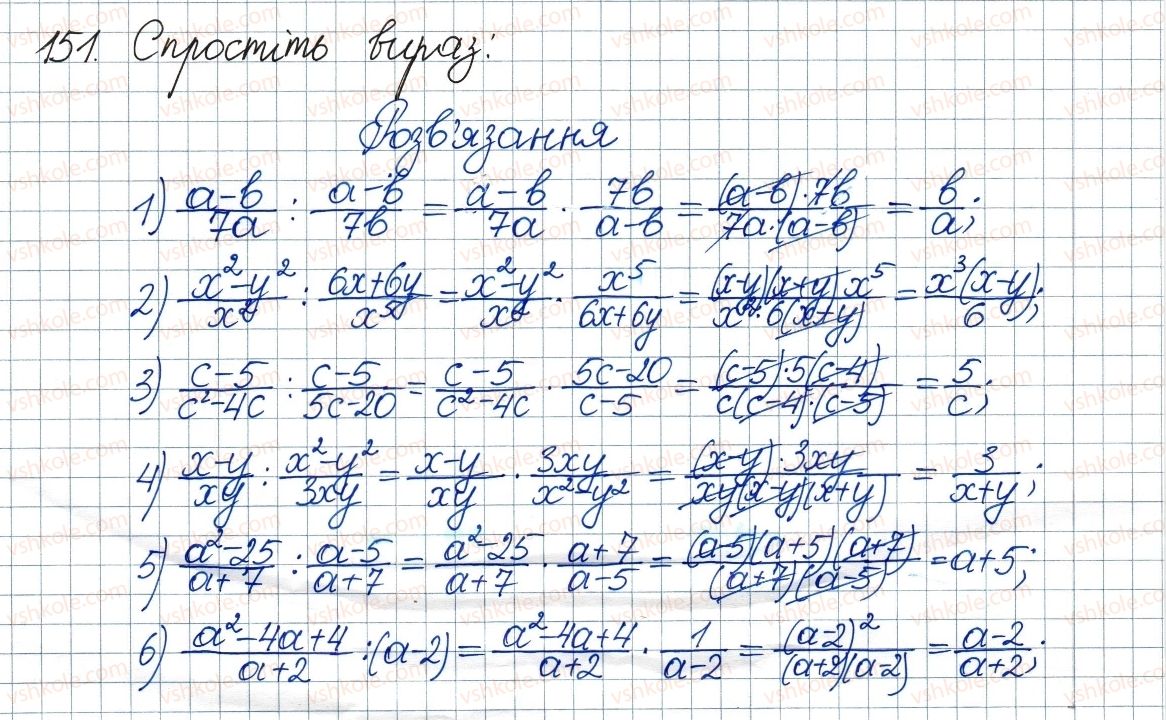 151. Спростіть вираз:
Розв'язання
1) (a-b)/(7a) : (a-b)/(7b) = (a-b)/(7a) · (7b)/(a-b) = ((a-b)·7b)/(7a·(a-b)) = b/a;
2) (x²-y²)/x² : (6x+6y)/x⁵ = (x²-y²)/x² · x⁵/(6x+6y) = ((x-y)(x+y)x⁵)/(x²·6(x+y)) = (x³(x-y))/6;
3) (c-5)/(c²-4c) : (c-5)/(5c-20) = (c-5)/(c²-4c) · (5c-20)/(c-5) = ((c-5)·5(c-4))/(c(c-4)·(c-5)) = 5/c;
4) (x-y)/(xy) : (x²-y²)/(3xy) = (x-y)/(xy) · (3xy)/(x²-y²) = ((x-y)·3xy)/(xy(x-y)(x+y)) = 3/(x+y);
5) (a²-25)/(a+7) : (a-5)/(a+7) = (a²-25)/(a+7) · (a+7)/(a-5) = ((a-5)(a+5)(a+7))/((a+7)(a-5)) = a+5;
6) (a²-4a+4)/(a+2) : (a-2) = (a²-4a+4)/(a+2) · 1/(a-2) = (a-2)²/((a+2)(a-2)) = (a-2)/(a+2);